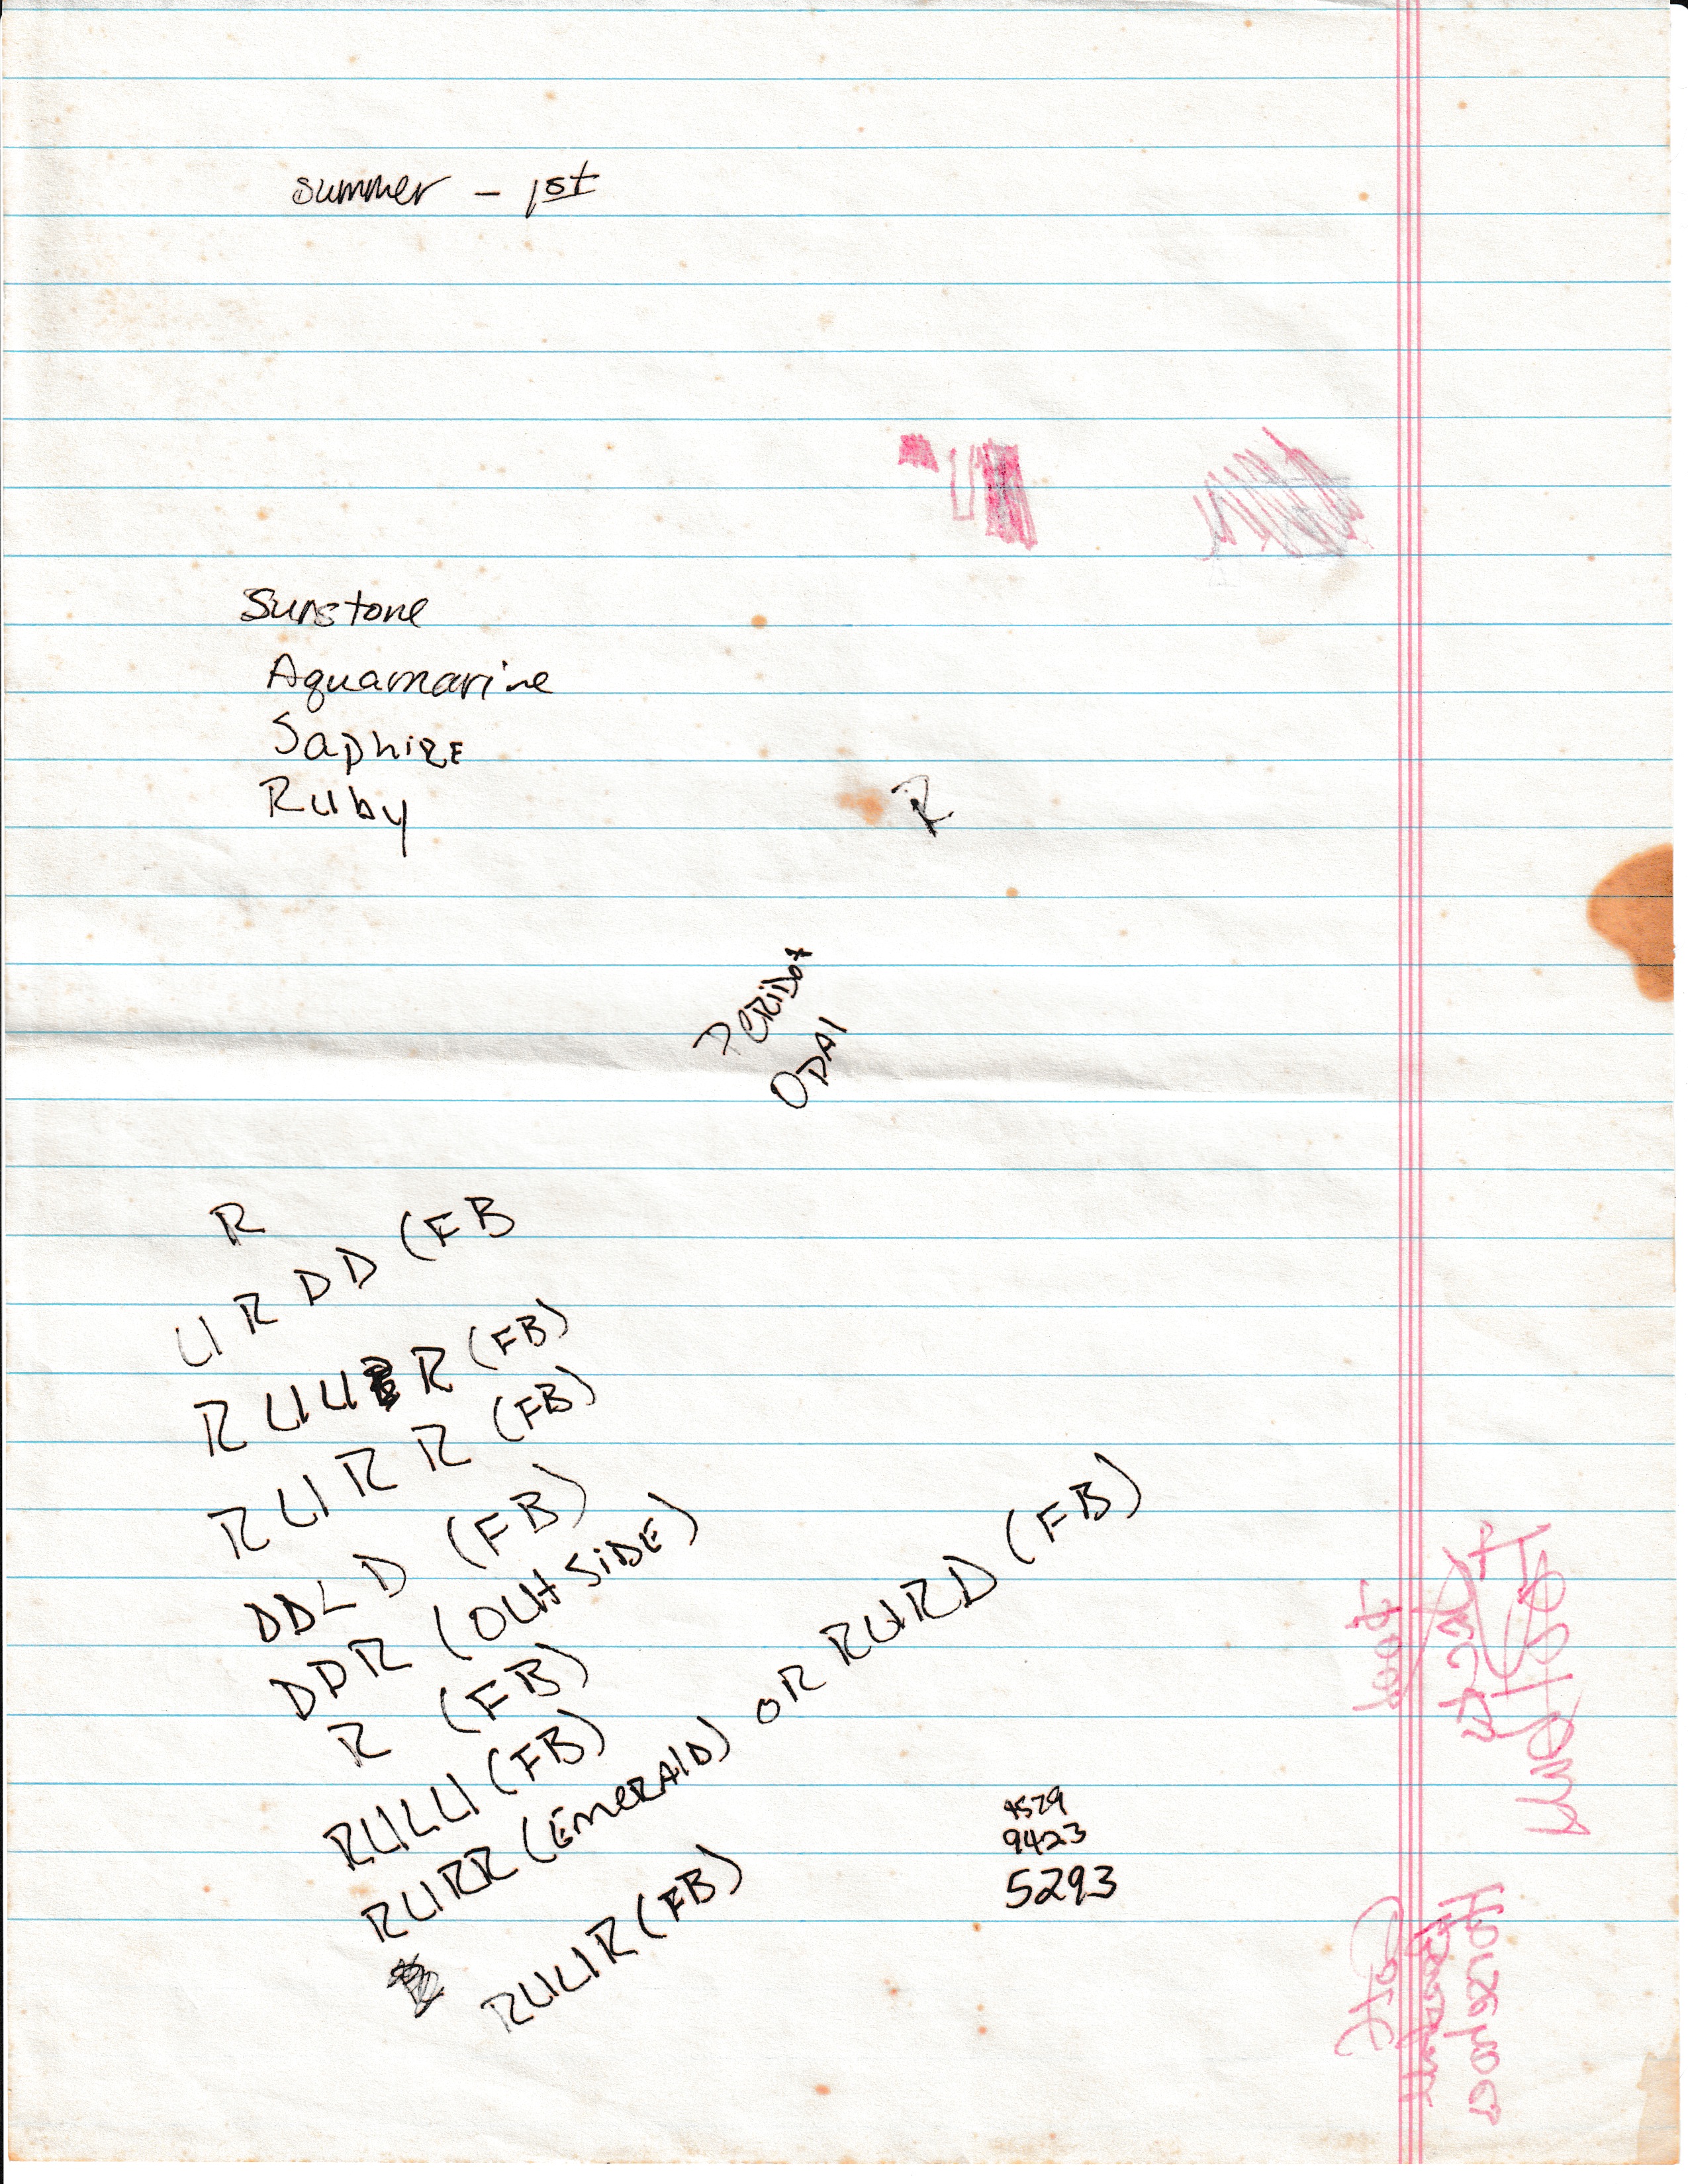 summer - 1st
Sunstone
Aquamarine
SaphiRE
Ruby
R
PERiDot
OPAl
R
U R D D (FB
R U U R (FB)
R U R R (FB)
D D L D (FB)
D D R (OUtSiDE)
R (FB)
R U L U (FB)
R U R R (EmERAlD) OR R U R D (FB)
R U U R (FB)
4529
9423
5293